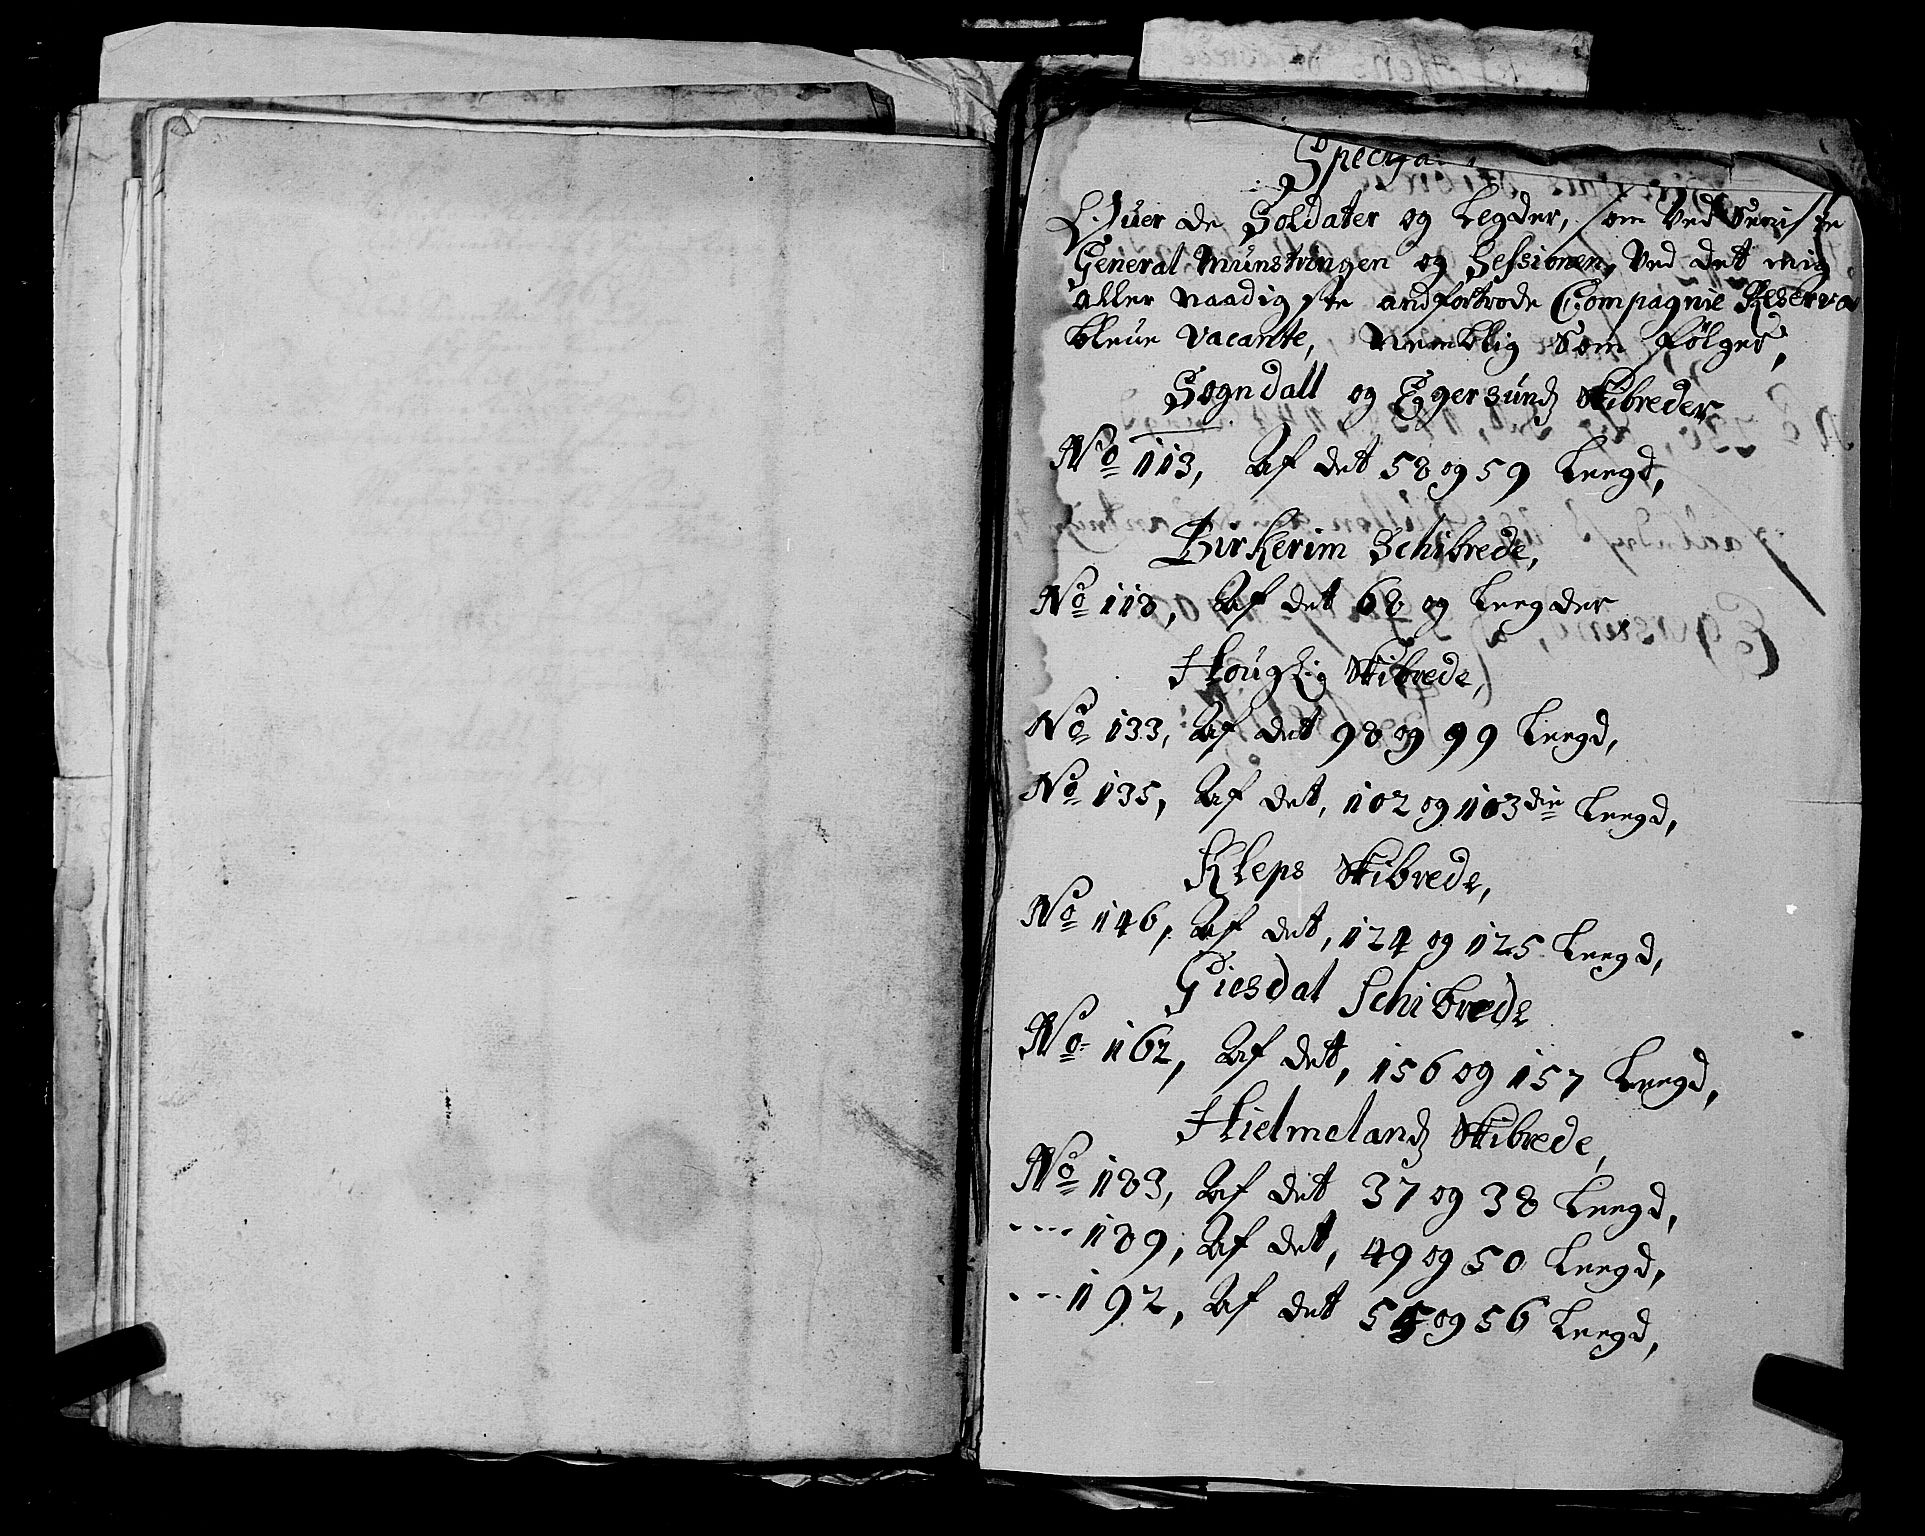 Ofuer de Soldater og Legder, som Ved Seeniste
General Munstringen og Sessionen, Ved det mig
aller naadigste andfortrode Compagnie Reserva
bleue vacante, Nemblig Som følger,
Sogndall og Egersund Skibreder
No 113, Af det 58 og 59 Leegd,
Birkerim Schibrede,
No 118, Af det 68 og Leegder
Skibrede,
No 133, Af det 98 og 99 Leegd,
No 135, Af det, 102 og 103 die Leegd,
Kleps Skibrede,
No 146, Af det, 124 og 125 Leegd,
Giesdal Schibrede
No 162, Af det, 156 og 157 Leegd,
Hielmeland Skibrede,
No 183, Af det 37 og 38 Leegd,
---- 189, Af det, 49 og 50 Leegd,
---- 192, Af det 55 og 56 Leegd,